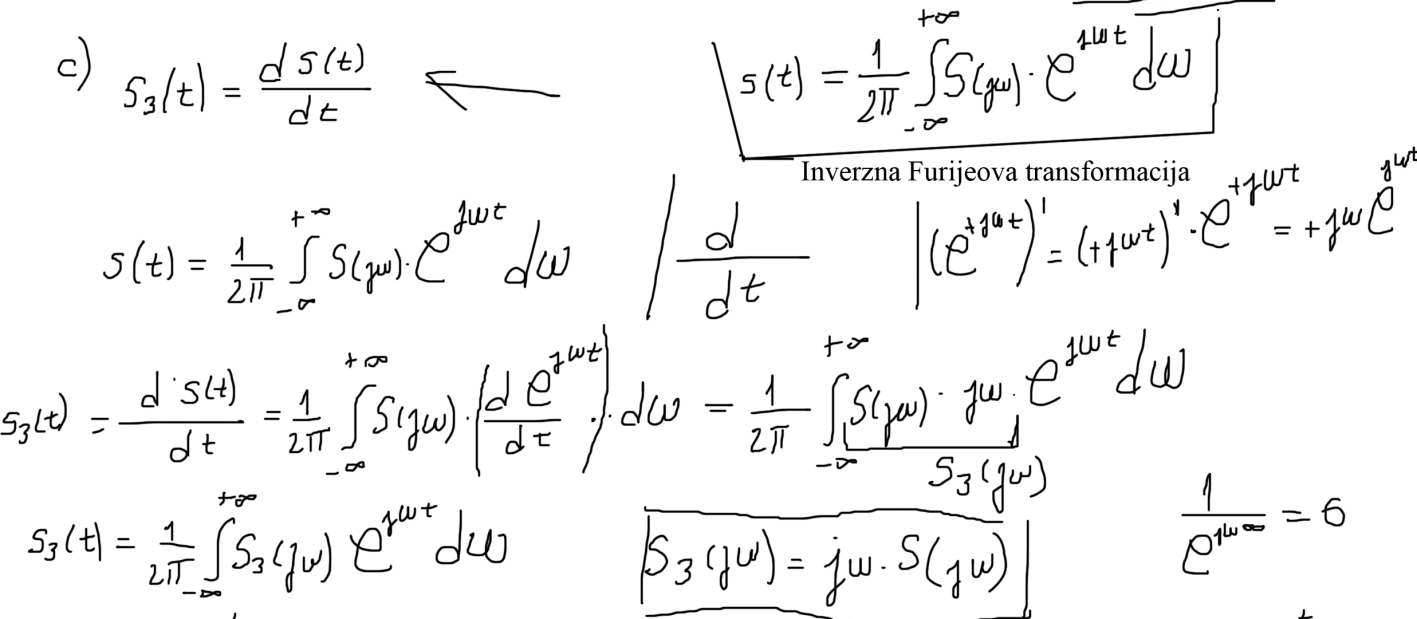 c) S₃(t) = d s(t) / dt ←
s(t) = 1/2π ∫_{-∞}^{+∞} S(jω) · e^{jωt} dω
Inverzna Furijeova transformacija
s(t) = 1/2π ∫_{-∞}^{+∞} S(jω) · e^{jωt} dω | d/dt
|(e^{+jωt})' = (+jωt)' · e^{+jωt} = +jω e^{jωt}
s₃(t) = d s(t) / dt = 1/2π ∫_{-∞}^{+∞} S(jω) · (d e^{jωt} / dt) · dω = 1/2π ∫_{-∞}^{+∞} S(jω) · jω · e^{jωt} dω
S₃(jω)
s₃(t) = 1/2π ∫_{-∞}^{+∞} S₃(jω) e^{jωt} dω
S₃(jω) = jω · S(jω)
1 / e^{jω∞} = 6